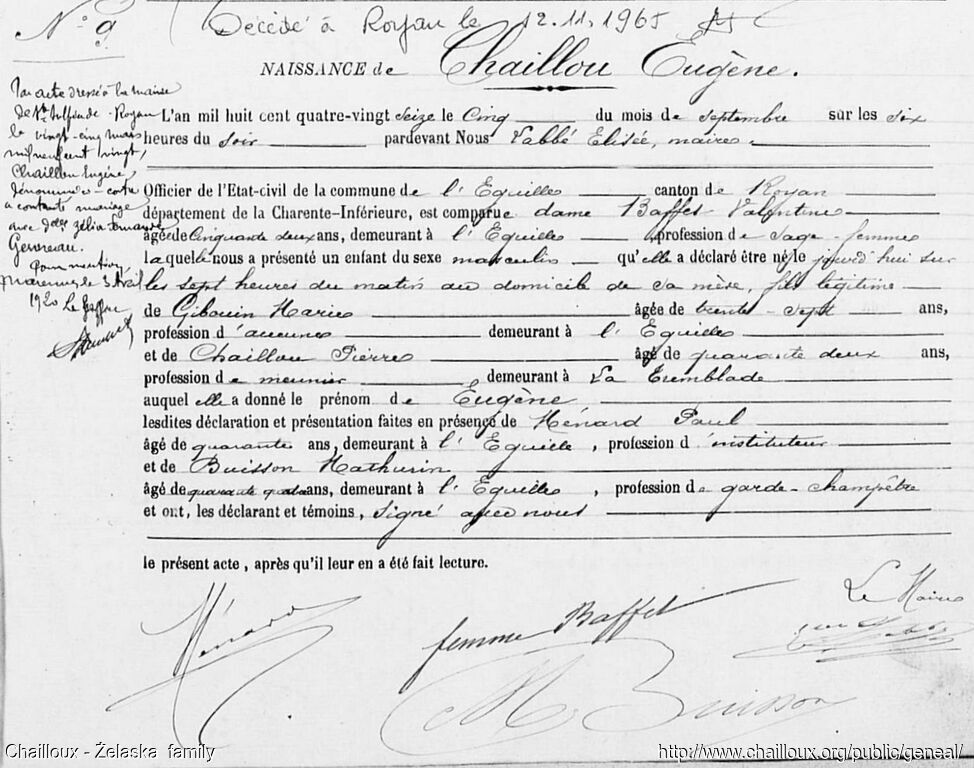 N° 9
Décédé à Royan le 12.11.1965
NAISSANCE de Chaillou Eugène.
Par acte dressé à la mairie
de St Sulpice de Royan
le vingt-cinq mars
mil neuf cent vingt,
Chaillou Eugène,
dénommé ci-contre
a contracté mariage
avec Zélia
Gerneau.
Pour mention
Marennes le 3 Avril
1920 Le Greffier
L'an mil huit cent quatre-vingt seize le Cinq du mois de septembre sur les six
heures du soir pardevant Nous Vabbé Elisée, maire,
Officier de l'Etat-civil de la commune de l'Eguille canton de Royan
département de la Charente-Inférieure, est comparue dame Baffet Valentine
âgée de Cinquante deux ans, demeurant à l'Eguille, profession de sage-femme
laquelle nous a présenté un enfant du sexe masculin qu'elle a déclaré être né le jourd'hui sur
les sept heures du matin au domicile de sa mère, fils légitime
de Gibouin Marie âgée de trente-sept ans,
profession d'aucune demeurant à l'Eguille
et de Chaillou Pierre âgé de quarante deux ans,
profession de meunier demeurant à La Tremblade
auquel elle a donné le prénom de Eugène
lesdites déclaration et présentation faites en présence de Hénard Paul
âgé de quarante ans, demeurant à l'Eguille, profession d'instituteur
et de Buisson Mathurin
âgé de quarante quatre ans, demeurant à l'Eguille, profession de garde-champêtre
et ont, les déclarant et témoins, signé avec nous
le présent acte, après qu'il leur en a été fait lecture.
Hénard
femme Baffet
Le Maire
M Buisson
Chailloux - Želaska family
http://www.chailloux.org/public/geneal/